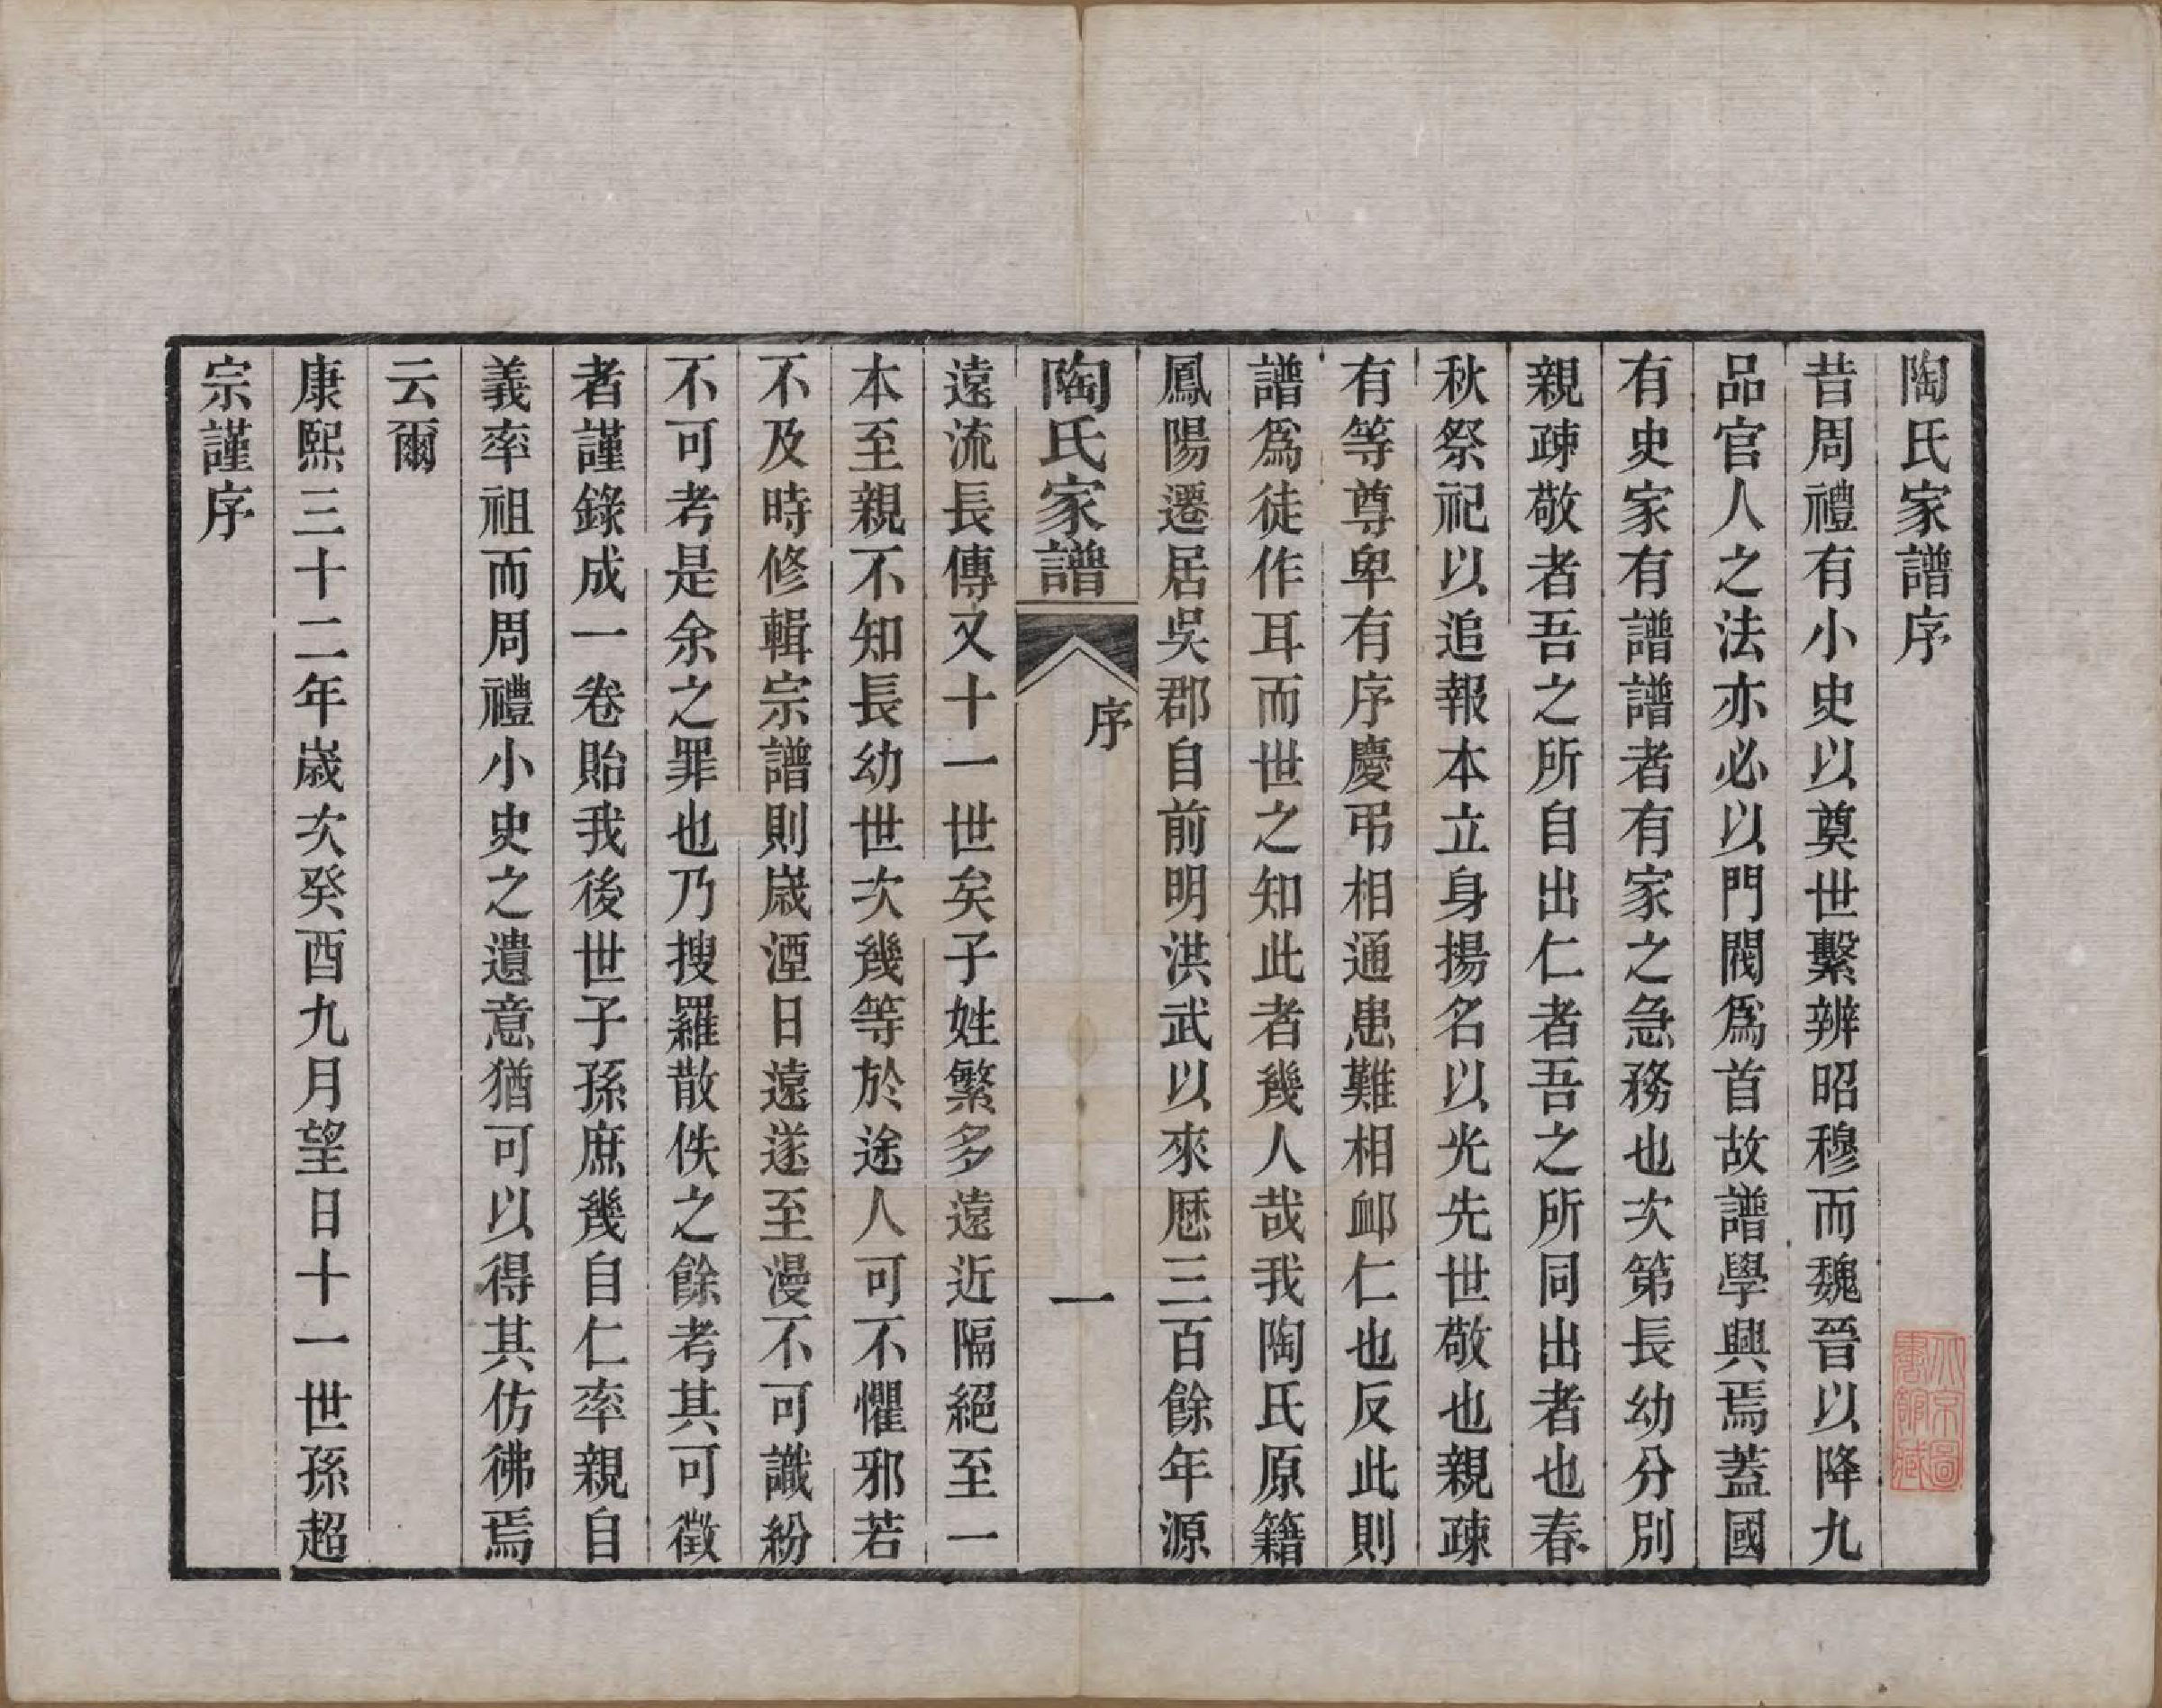 陶氏家譜序
昔周禮有小史以奠世繫辨昭穆而魏晉以降九
品官人之法亦必以門閥爲首故譜學興焉蓋國
有史家有譜譜者有家之急務也次第長幼分別
親疎敬者吾之所自出仁者吾之所同出者也春
秋祭祀以追報本立身揚名以光先世敬也親疎
有等尊卑有序慶弔相通患難相卹仁也反此則
譜爲徒作耳而世之知此者幾人哉我陶氏原籍
鳳陽遷居吳郡自前明洪武以來歷三百餘年源
陶氏家譜
序
一
遠流長傳又十一世矣子姓繁多遠近隔絕至一
本至親不知長幼世次幾等於途人可不懼邪若
不及時修輯宗譜則歲湮日遠遂至漫不可識紛
不可考是余之罪也乃搜羅散佚之餘考其可徵
者謹錄成一卷貽我後世子孫庶幾自仁率親自
義率祖而周禮小史之遺意猶可以得其仿彿焉
云爾
康熙三十二年歲次癸酉九月望日十一世孫超
宗謹序
北京圖
書館藏